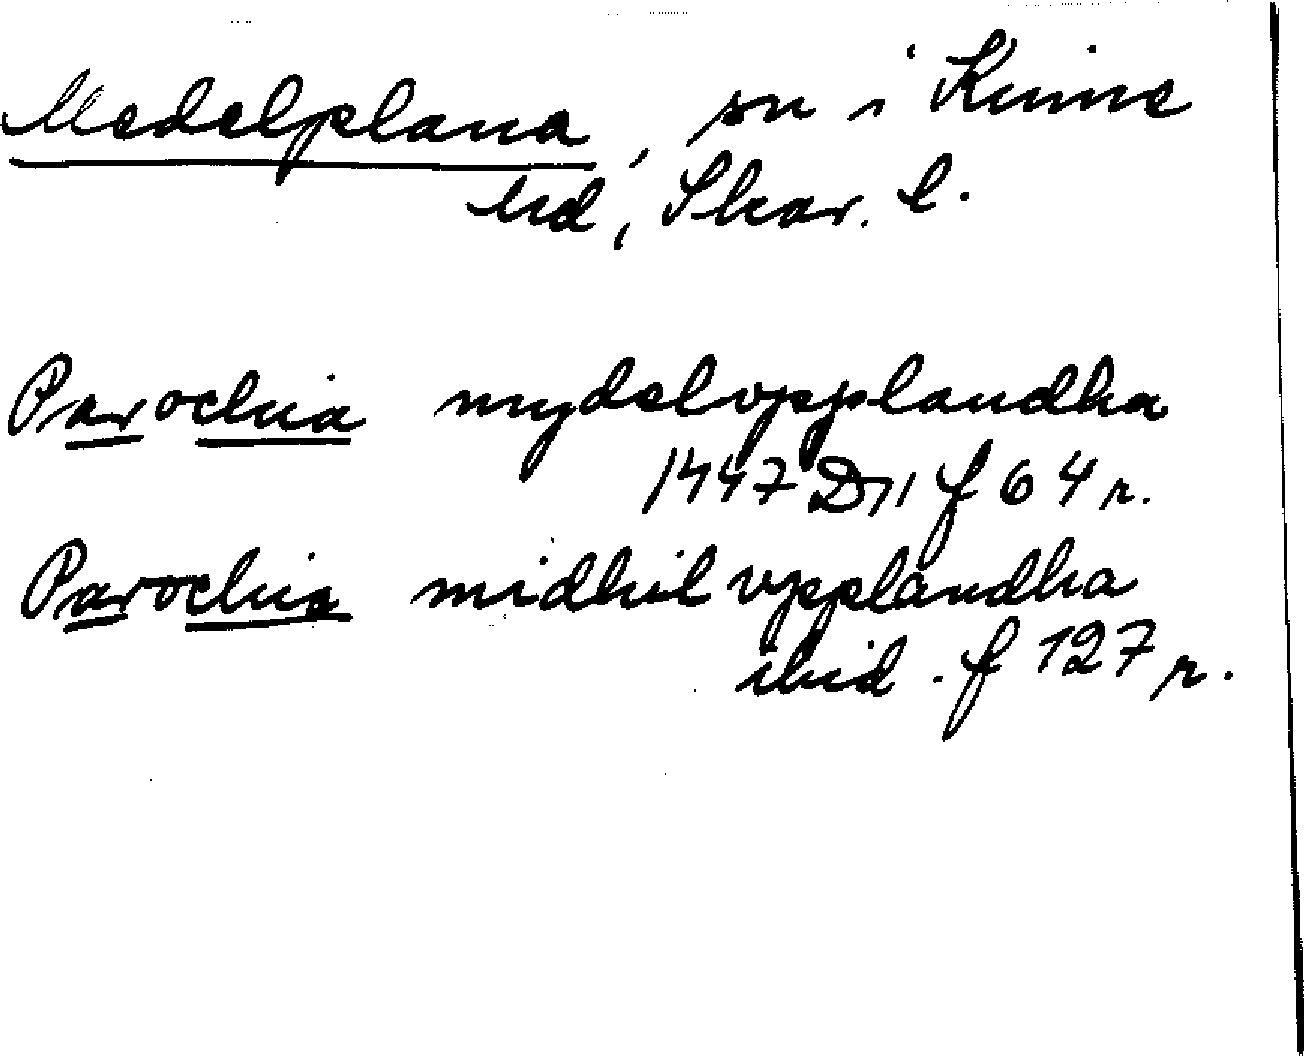 Medelplana, sn i Kinne
hd, Skar. l.
Parochia mydelvpplandha
1447 D 11 f 64 r.
Parochia midhil vpplandha
ibid. f 127 r.